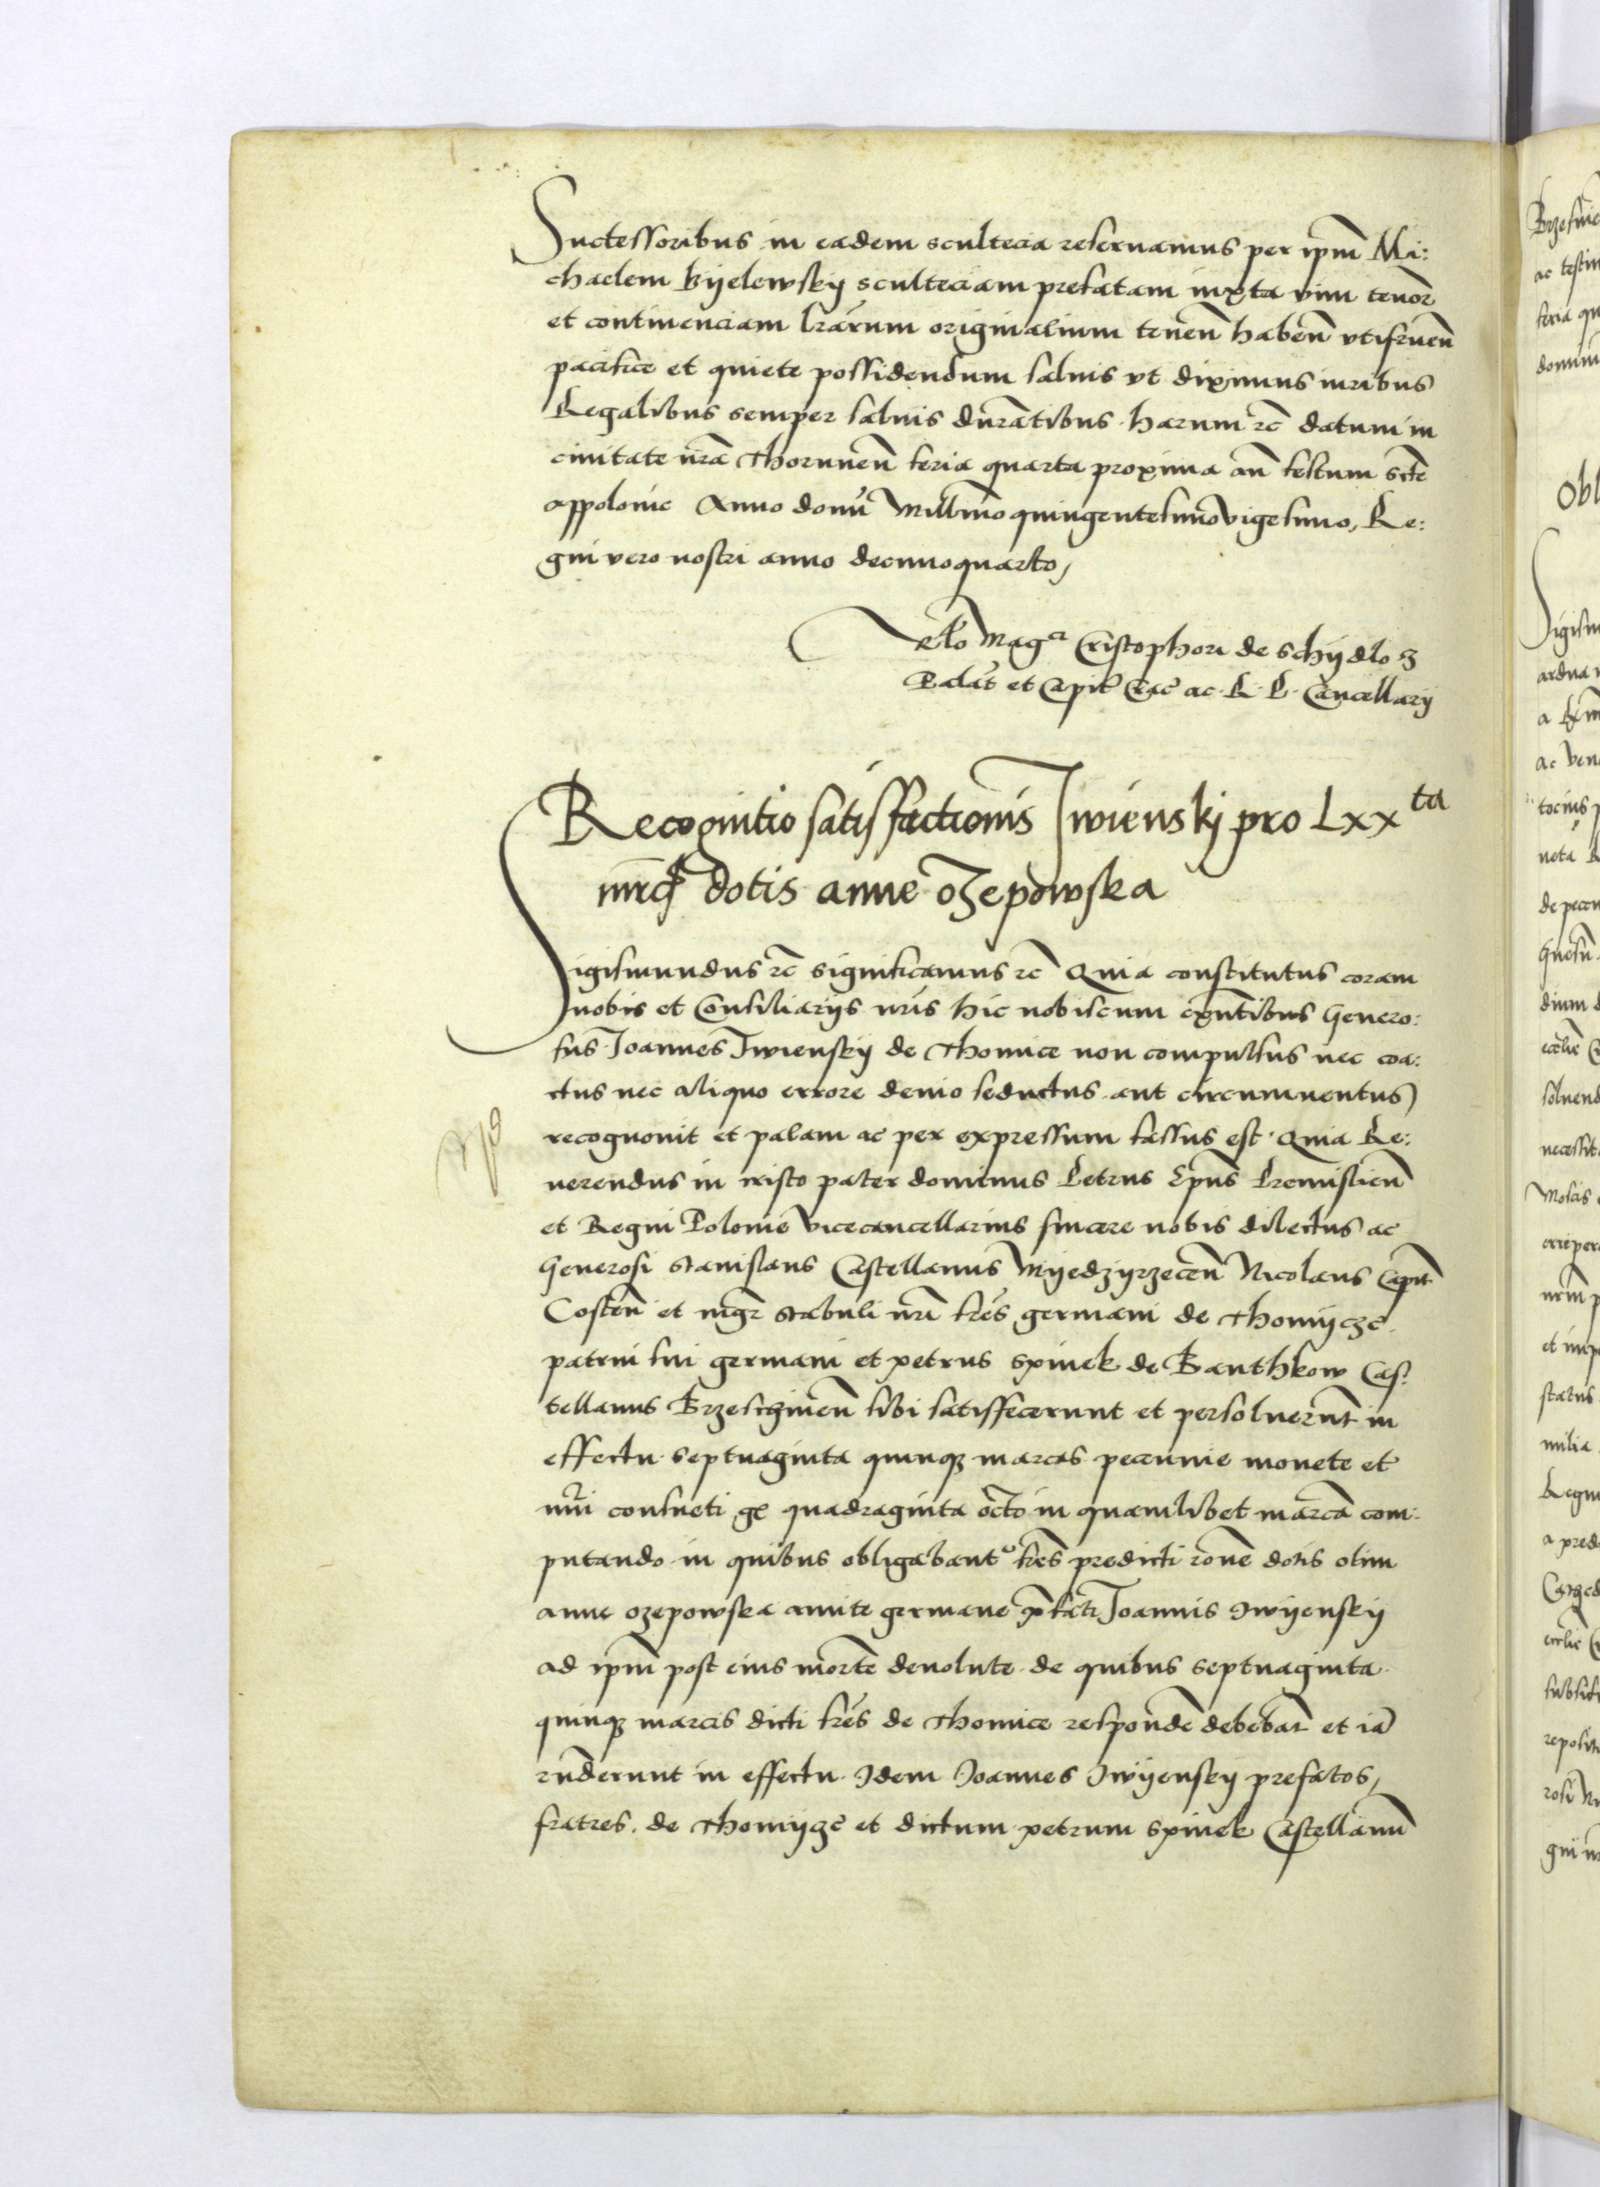 Successoribus in eadem scultecia reservamus per ipm̃ Mi:
chaelem Kyelewsky scultecIam prefatam iuxta vim tenor̃
et continenciam lrãrum originalium teneñ habeñ vtifrueñ
pacifice et quiete possidendum saluis vt diximus iuribus
Regalibus semper saluis durãtibus harum rc̃ datum in
ciuitate nrã Thoruneñ feria quarta proxima añ festum scte
appolonie Anno domĩ Millmo quingentesimo vigesimo, Re:
gni vero nostri anno decimoquarto,
Relo Magci Cristophori de Schydlo3
Palat̃ et Capit̃ Crac̃ ac R P Cancellarij
Recognitio satisfactionis Iwienskj pro Lxxta
mrc̃ dotis anne oZepowska
Sigismundus rc̃ significamus rc̃ Quia constitutus coram
nobis et Consiliarijs nris hic nobiscum exñtibus Genero:
sus Joannes Jwiensky de Thomice non compulsus nec coa:
ctus nec aliquo errore deuio seductus aut circumuentus
recognouit et palam ac per expressum fassus est Quia Re:
uerendus in cristo pater dominus Petrus Epus̃ Premislieñ
et Regni Polonie vicecancellarius sincere nobis dilectus ac
Generosi Stanislaus Castellanus Myedzyrzeceñ Nicolaus Capit̃
Costeñ et mgr̃ stabuli nri frẽs germani de Thomycze
patrui sui germani et petrus spinek de Banthkow Cas:
tellanus Brzeschineñ sibi satisfecerunt et persoluerũt in
effectu septuaginta quinq3 marcas pecunie monete et
nũri consueti gr̃ quadraginta octo in quamlibet marcã com:
putando in quibus obligabant̃ frẽs predicti rõne dotis olim
anne ozepowska amite germane p̃fati Joannis Iwyensky
ad ipm̃ post eius mortẽ deuolute de quibus septuaginta
quinq3 marcis dicti frẽs de Thomice respondẽ debebãt et iã
rñderunt in effectu Idem Ioannes Iwyensky prefatos,
fratres de Thomycze et dictum petrum spinek Castellanũ